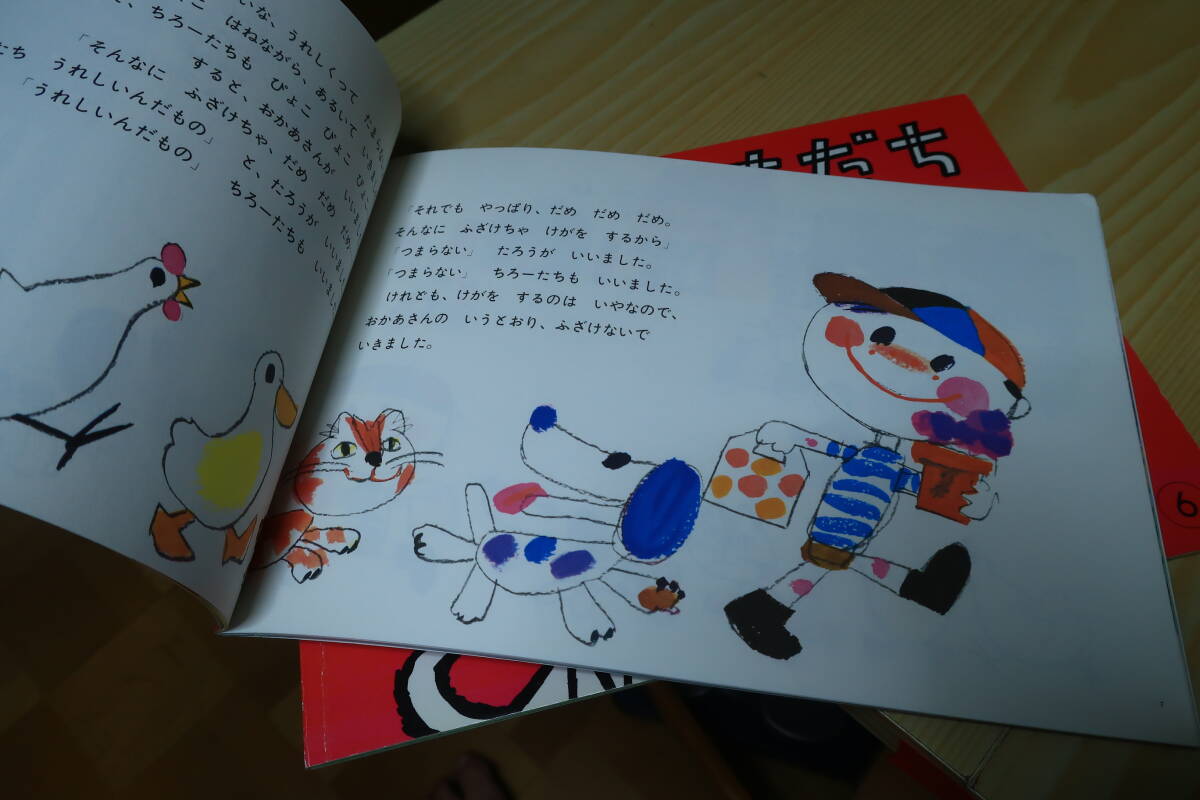 いな、うれしくって たま
はねながら、あるいて いきま
ちろーたちも ぴょこ ぴょこ
すると、おかあさんが いいま
「そんなに ふざけちゃ、だめ だめ だめ
うれしいんだもの」 と、たろうが いいまし
「うれしいんだもの」 ちろーたちも いいまし
「それでも やっぱり、だめ だめ だめ。
そんなに ふざけちゃ けがを するから」
「つまらない」 たろうが いいました。
「つまらない」 ちろーたちも いいました。
けれども、けがを するのは いやなので、
おかあさんの いうとおり、ふざけないで
いきました。
7
だち
6